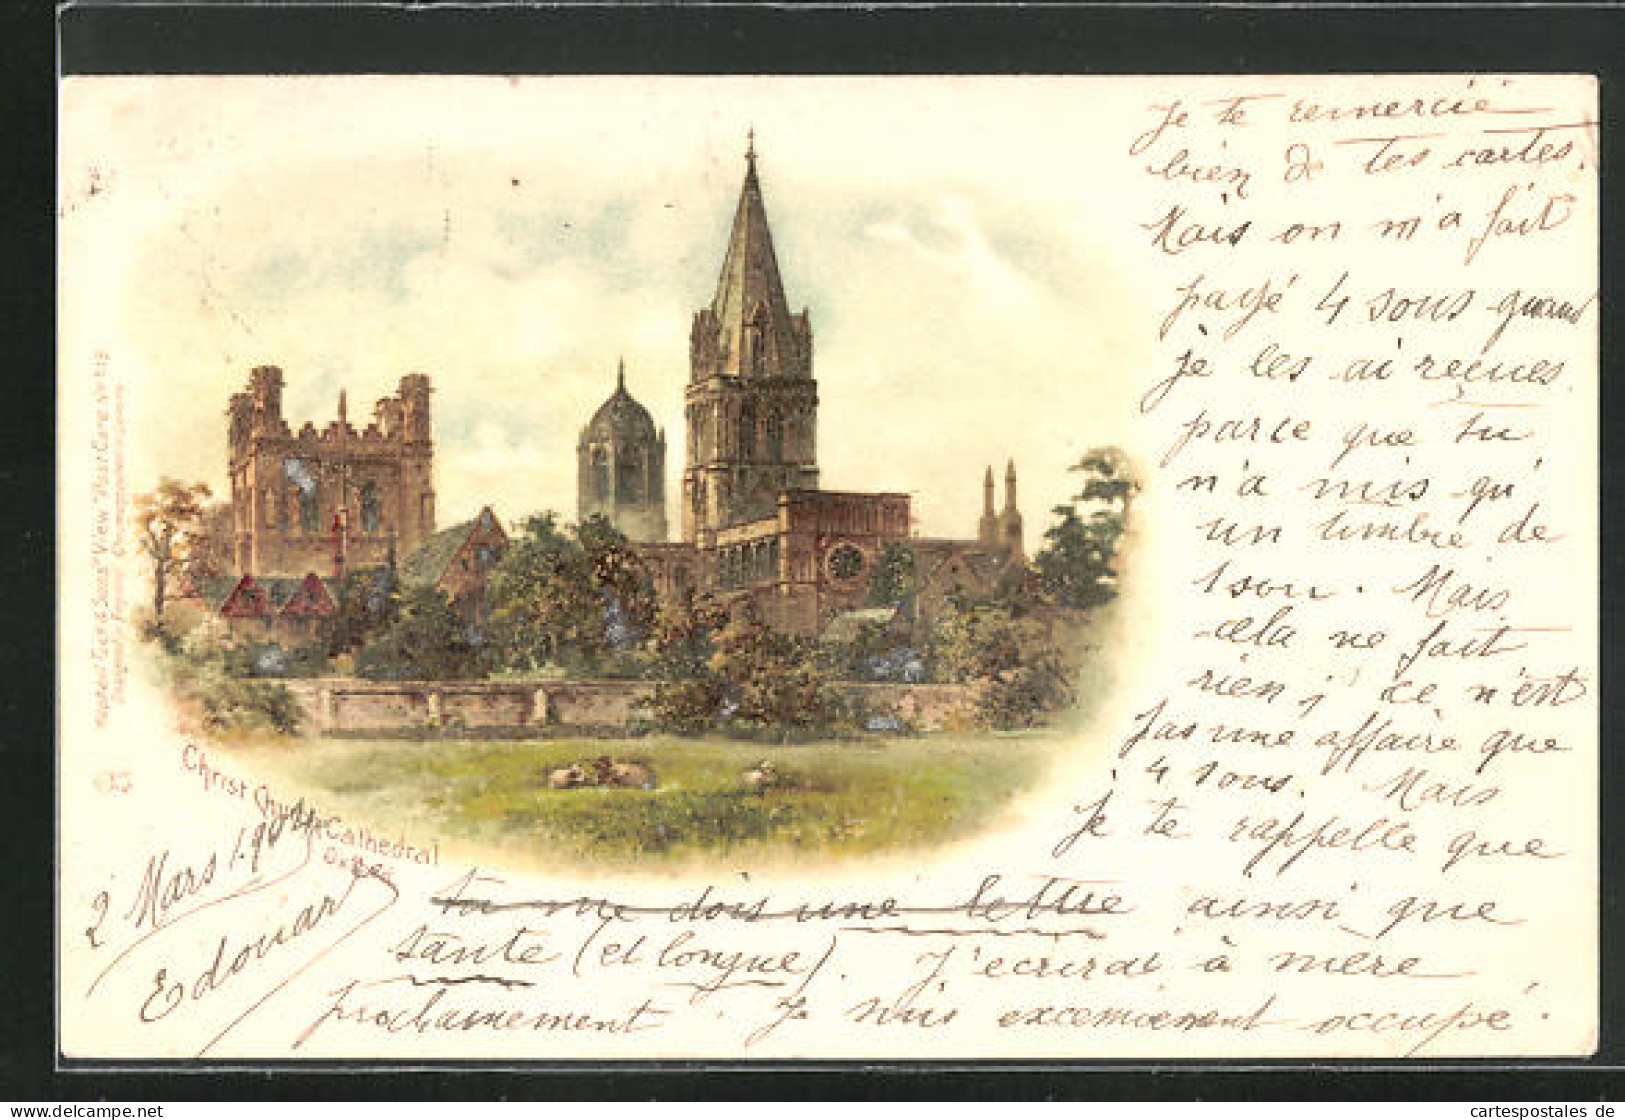 Je te remercie
bien de tes cartes.
Mais on m'a fait
payé 4 sous quand
je les ai reçues
parce que tu
n'a mis qu'
un timbre de
1 sou. Mais
cela ne fait
rien, ce n'est
pas une affaire que
4 sous. Mais
je te rappelle que
tu me dois une lettre ainsi que
tante (et longue). J'écrirai à mère
prochainement. Je suis excessivement occupé.
2 Mars 1.90
Edouard
Christ Church Cathedral
Oxford
Raphael Tuck & Sons' "View" Post Card No
cartespostales de